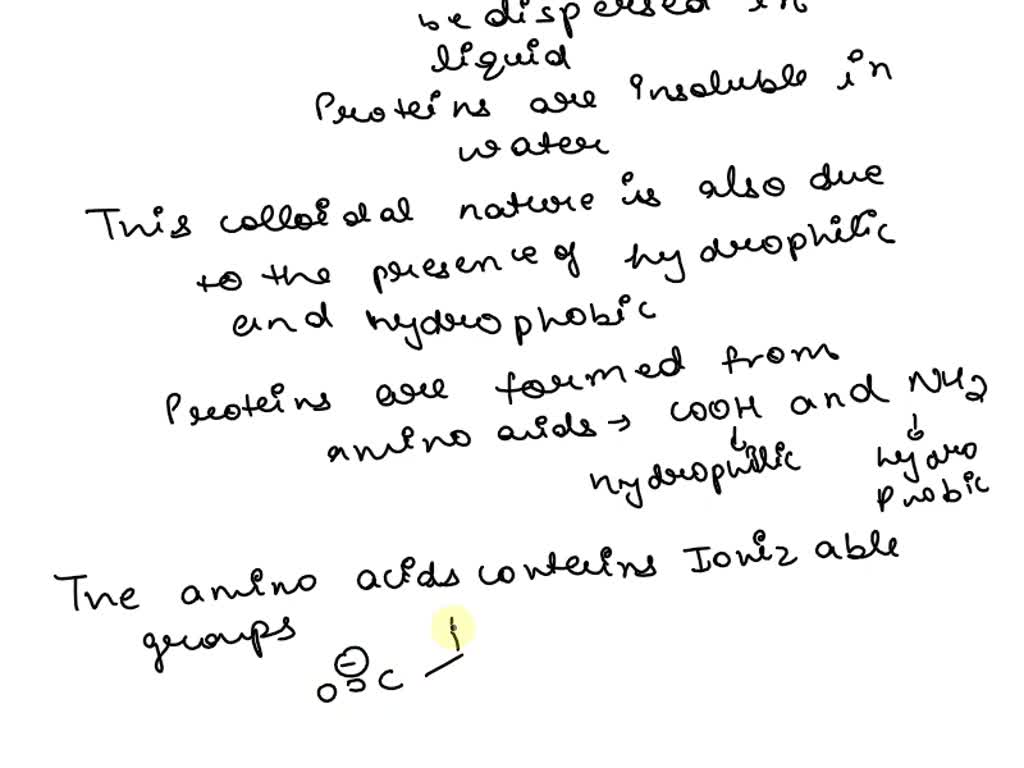 be dispersed in
liquid
Proteins are insoluble in
water
This colloidal nature is also due
to the presence of hydrophilic
and hydrophobic
Proteins are formed from
amino acids → COOH and NH2
hydrophilic hydro
phobic
The amino acids contains Ionizable
groups
⊖
O2C